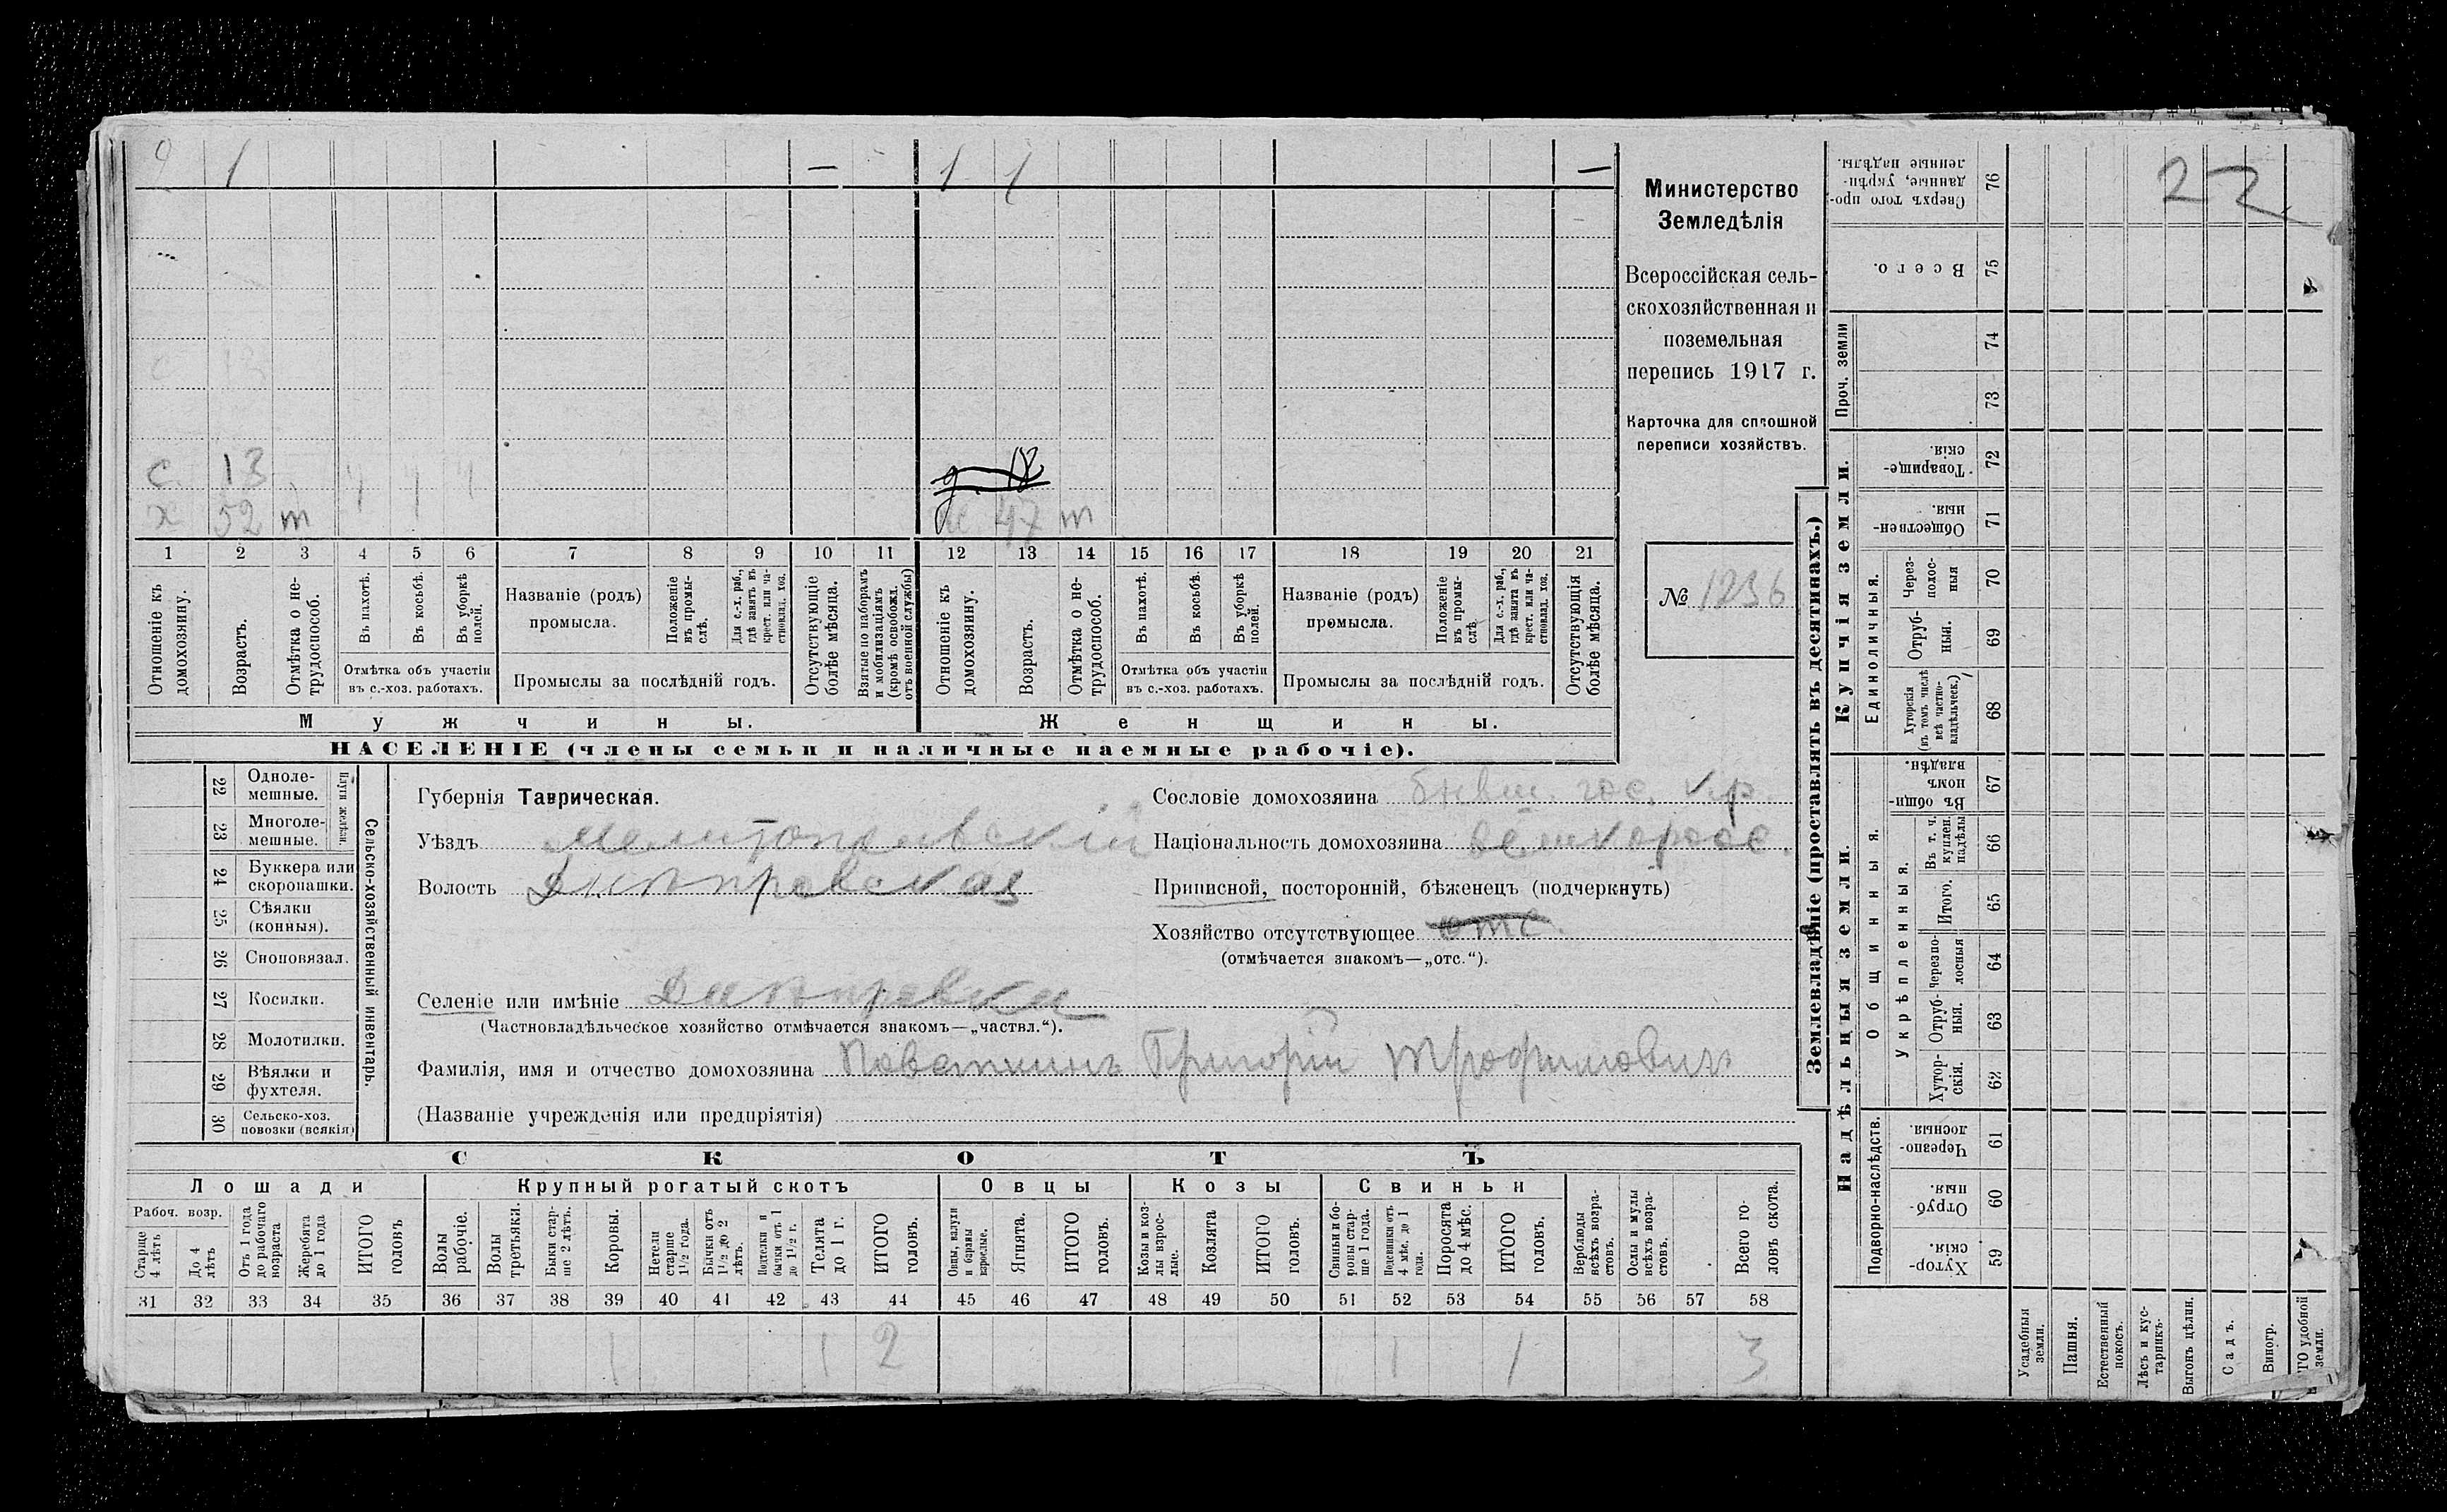 2 1 — 1 1 —
22
Министерство
Земледѣлія
Всероссійская сель-
скохозяйственная и
поземельная
перепись 1917 г.
Карточка для сплошной
переписи хозяйствъ.
с. 13
х 52 т
д. 18
47 т
1 2 3 4 5 6 7 8 9 10 11 12 13 14 15 16 17 18 19 20 21
Отношеніе къ домохозяину.
Возрастъ.
Отмѣтка о не-трудоспособ.
Въ пахотѣ.
Въ косьбѣ.
Въ уборкѣ полей.
Отмѣтка объ участіи
въ с.-хоз. работахъ.
Названіе (родъ)
промысла.
Положеніе въ промы-слѣ.
Для с.-х. раб., гдѣ занятъ въ крест. или ча-стновлад. хоз.
Промыслы за послѣдній годъ.
Отсутствующіе болѣе мѣсяца.
Взятые по наборамъ и мобилизаціямъ (кромѣ освобожд. отъ военной службы)
Отношеніе къ домохозяину.
Возрастъ.
Отмѣтка о не-трудоспособ.
Въ пахотѣ.
Въ косьбѣ.
Въ уборкѣ полей.
Отмѣтка объ участіи
въ с.-хоз. работахъ.
Названіе (родъ)
промысла.
Положеніе въ промы-слѣ.
Для с.-х. раб., гдѣ занята въ крест. или ча-стновлад. хоз.
Промыслы за послѣдній годъ.
Отсутствующія болѣе мѣсяца.
Мужчины. Женщины.
НАСЕЛЕНІЕ (члены семьи и наличные наемные рабочіе).
№ 1236
Губернія Таврическая.
Уѣздъ Мелитопольскій
Волость Днѣпровская
Сословіе домохозяина бывш. гос. кр.
Національность домохозяина великоросс.
Приписной, посторонній, бѣженецъ (подчеркнуть)
Хозяйство отсутствующее отс.
(отмѣчается знакомъ—„отс.“).
Селеніе или имѣніе Днѣпровка
(Частновладѣльческое хозяйство отмѣчается знакомъ—„частвл.“).
Фамилія, имя и отчество домохозяина Паветкинъ Григорій Трофимович
(Названіе учрежденія или предпріятія)
Сельско-хозяйственный инвентарь.
22 Одноле-мешные.
23 Многоле-мешные.
24 Буккера или скоропашки.
25 Сѣялки (конныя).
26 Сноповязал.
27 Косилки.
28 Молотилки.
29 Вѣялки и фухтеля.
30 Сельско-хоз. повозки (всякія)
СКОТЪ
Лошади Крупный рогатый скотъ Овцы Козы Свиньи
Рабоч. возр.
Старше 4 лѣтъ
До 4 лѣтъ
Отъ 1 года до рабочаго возраста
Жеребята до 1 года
ИТОГО головъ
Волы рабочіе.
Волы третьяки.
Быки стар-ше 2 лѣтъ.
Коровы.
Нетели старше 1½ года.
Бычки отъ 1½ до 2 лѣтъ.
Подтелки и бычки отъ 1 до 1½ г.
Телята до 1 г.
ИТОГО головъ.
Овцы, валухи и бараны взрослые.
Ягнята.
ИТОГО головъ.
Козы и коз-лы взрос-лые.
Козлята
ИТОГО головъ.
Свиньи и бо-ровы стар-ше 1 года.
Подсвинки отъ 4 мѣс. до 1 года.
Поросята до 4 мѣс.
ИТОГО головъ.
Верблюды всѣхъ возра-стовъ.
Ослы и мулы всѣхъ возра-стовъ.
Всего го-ловъ скота.
31 32 33 34 35 36 37 38 39 40 41 42 43 44 45 46 47 48 49 50 51 52 53 54 55 56 57 58
1 1 2 1 1 3
Землевладѣніе (проставлять въ десятинахъ.)
Купчія земли.
Надѣльныя земли.
Сверхъ того про-данные, укрѣп-ленные надѣлы. 76
Всего. 75
Проч. земли 74 73
Товарище-скія. 72
Обществен-ныя. 71
Единоличныя.
Через-полос-ныя 70
Отруб-ныя. 69
Хуторскія (въ томъ числѣ всѣ частно-владѣльческ.) 68
Общинныя.
Въ общи-номъ владѣн. 67
Укрѣпленныя.
Въ т. ч. куплен. надѣлы 66
Итого. 65
Черезпо-лосныя 64
Отруб-ныя. 63
Хутор-скія. 62
Подворно-наслѣдств.
Черезпо-лосныя. 61
Отруб-ныя. 60
Хутор-скія. 59
Усадебныя земли.
Пашня.
Естественный покосъ.
Лѣсъ и кус-тарникъ.
Выгонъ цѣлин.
Садъ.
Виногр.
удобной земли.